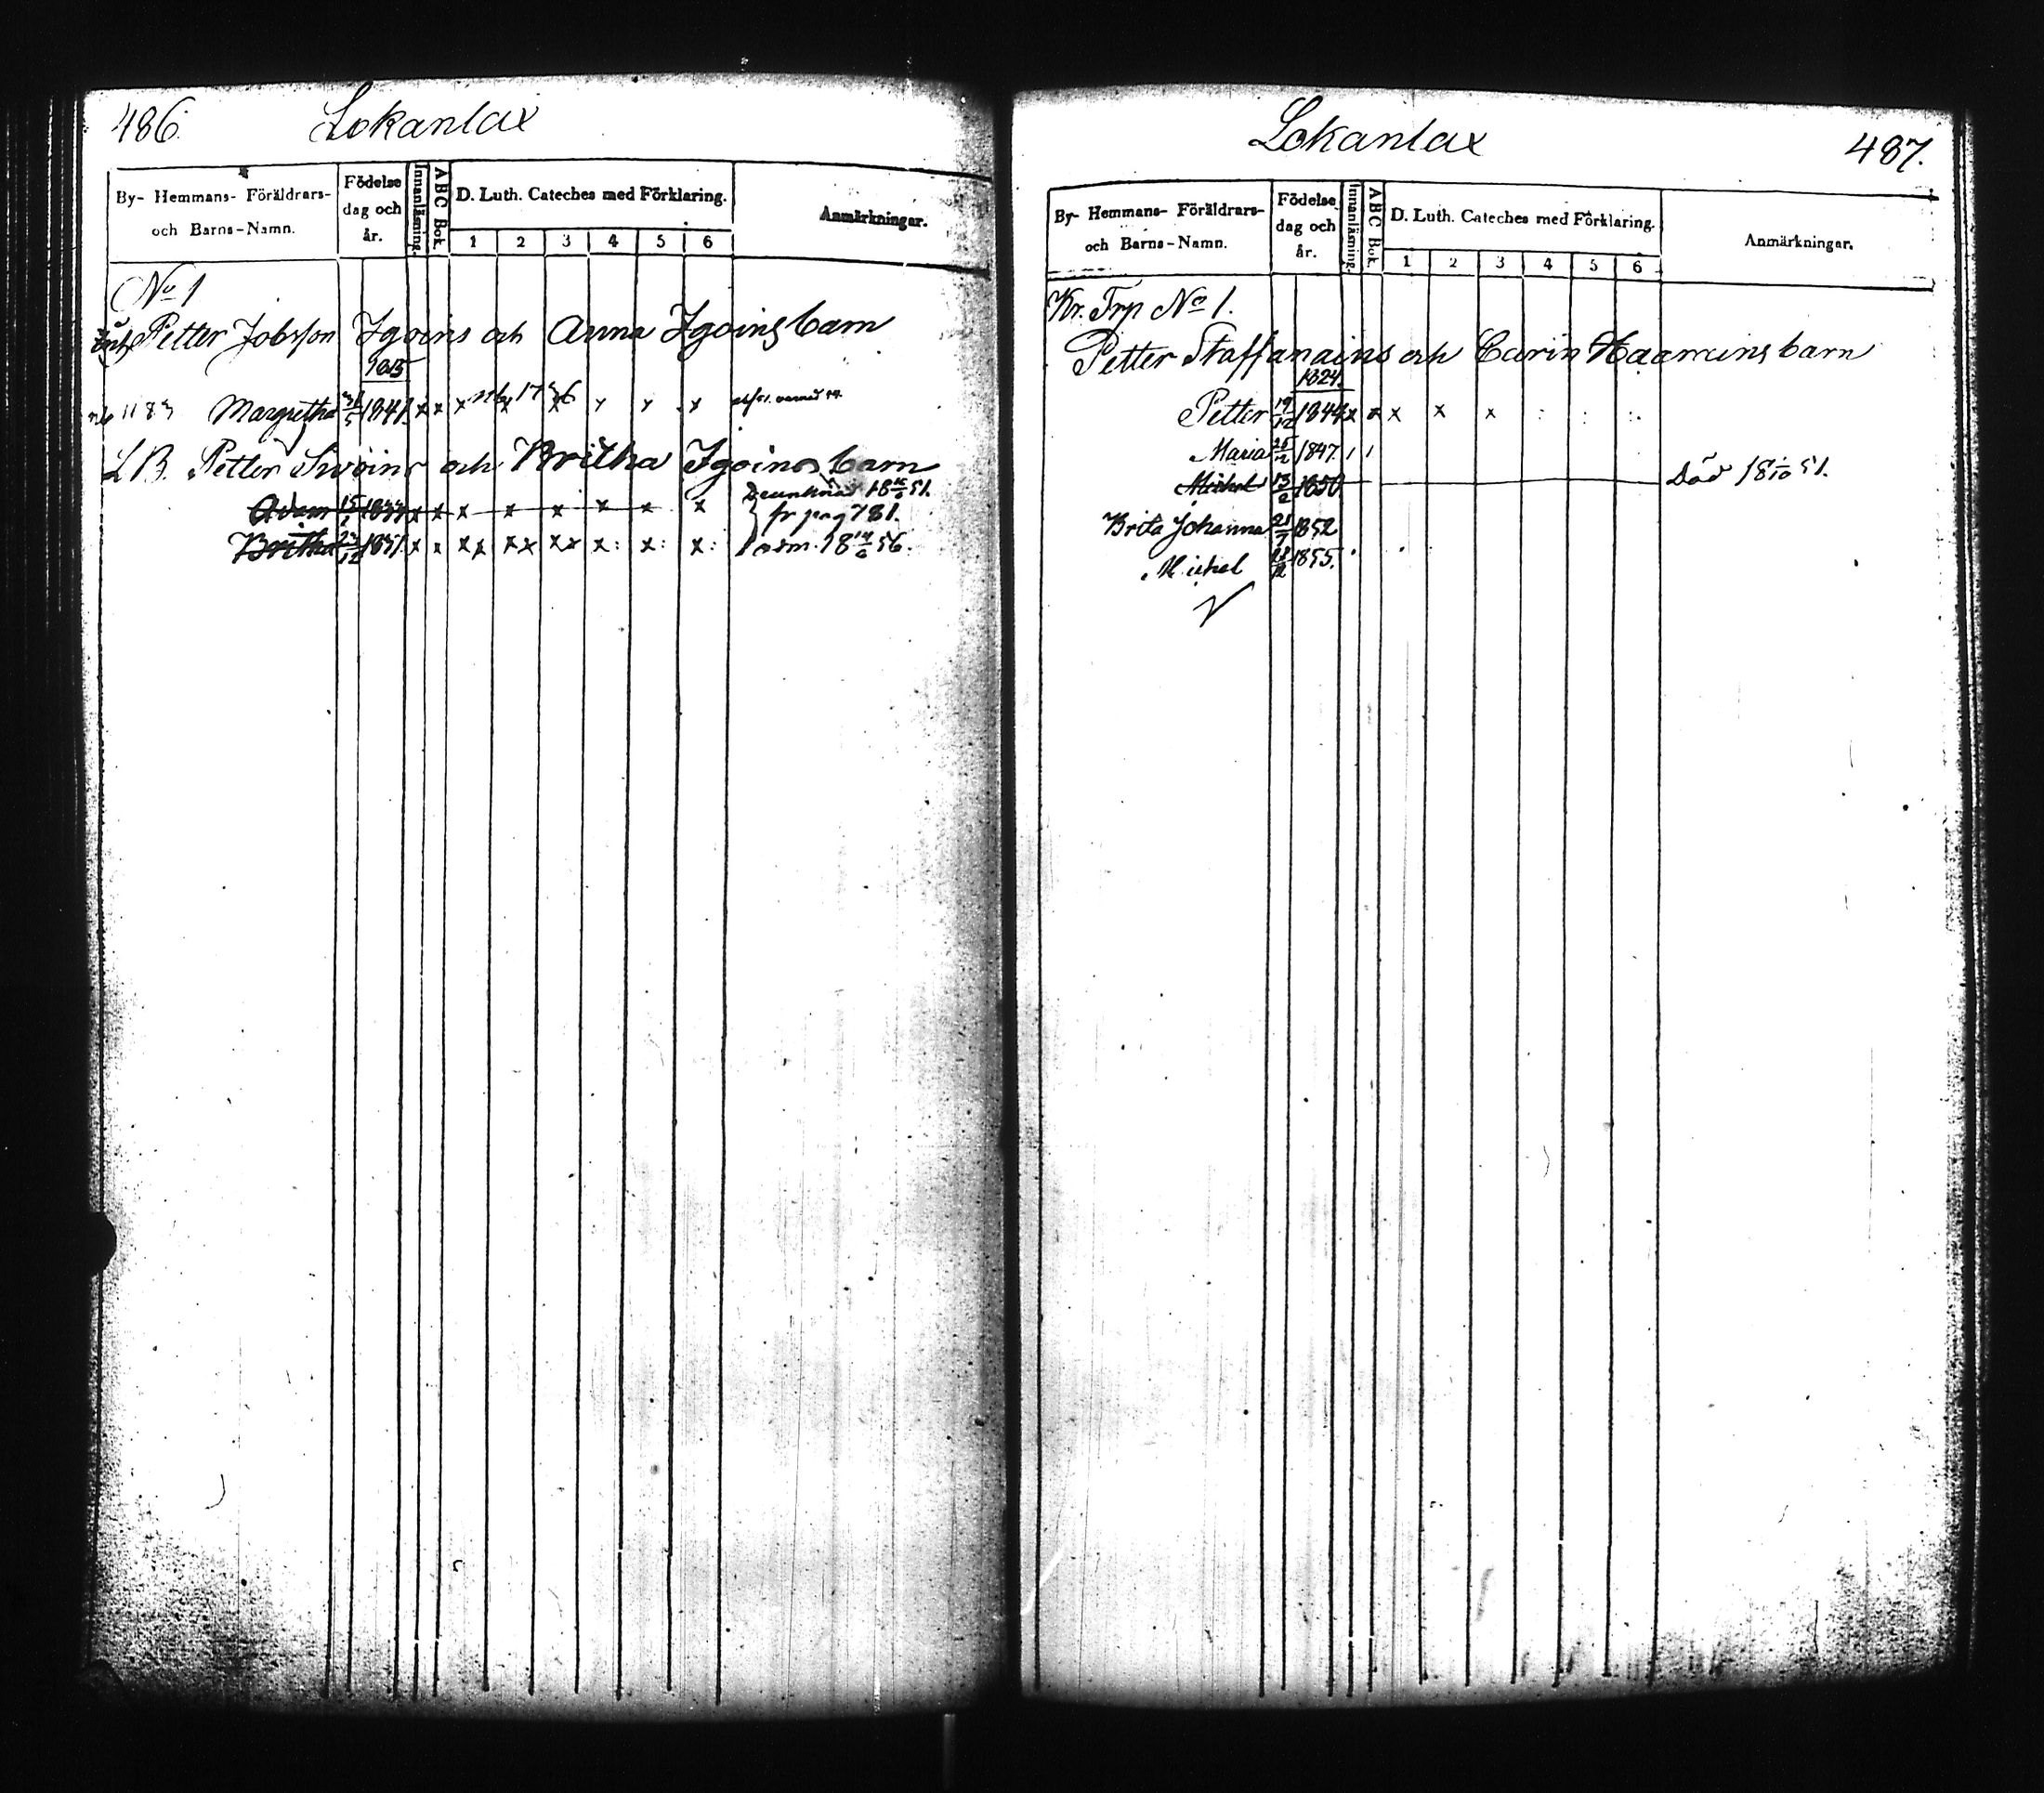 486. Lokanlax
By- Hemmans- Föräldrars- och Barns-Namn.
Födelse dag och år.
Innanläsning.
ABC Bok.
D. Luth. Cateches med Förklaring.
1 2 3 4 5 6
Anmärkningar.
No 1
Petter Jobsson Igoins och Anna Igoins barn
Margretha 1841. x x x x x x x x
L B. Petter Sivoins och Britha Igoinos barn
Adam 15 x x x x x x x x 51.
fr pag 781.
Britha x x x x x x x x x x x: x: x: adm. 18 56.
Lokanlax 487.
By- Hemmans- Föräldrars- och Barns-Namn.
Födelse dag och år.
Innanläsning.
ABC Bok.
D. Luth. Cateches med Förklaring.
1 2 3 4 5 6
Anmärkningar.
Kr. Trp No 1.
Petter Staffanains och Carin Haamains barn
1824.
Petter 19/12 1844 x x x x x : : :
Maria 25/12 1847. ı ı
Michel 13/2 1850 Död 18 /10 51.
Brita Johanna 21/7 1852
Michel 1855.